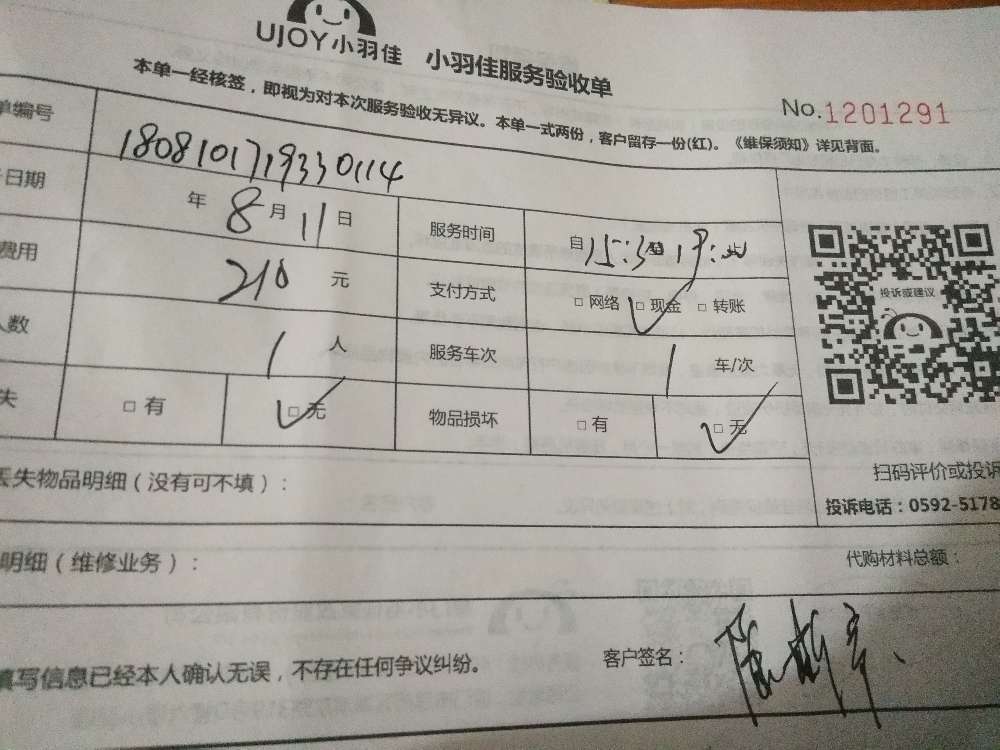 UJOY小羽佳 小羽佳服务验收单
本单一经核签，即视为对本次服务验收无异议。本单一式两份，客户留存一份(红)。《维保须知》详见背面。
No.1201291
单编号 1808101719330114
日期 年 8月11日 服务时间 自15:3
费用 210 元 支付方式 □ 网络 □ 现金 □ 转账
人数 1 人 服务车次 1 车/次
失 □ 有 □ 无 物品损坏 □ 有 □ 无
投诉或建议
扫码评价或投诉
投诉电话：0592-5178
丢失物品明细（没有可不填）：
明细（维修业务）：
代购材料总额：
填写信息已经本人确认无误，不存在任何争议纠纷。
客户签名：